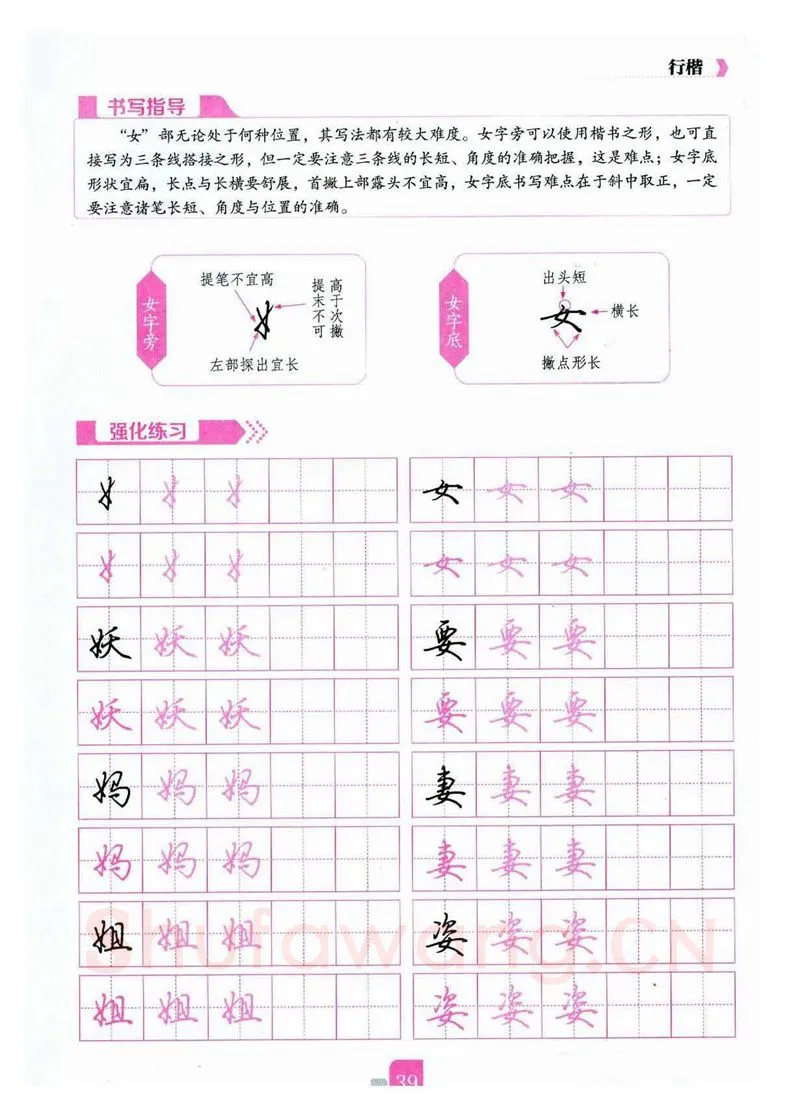 行楷
书写指导
“女”部无论处于何种位置，其写法都有较大难度。女字旁可以使用楷书之形，也可直
接写为三条线搭接之形，但一定要注意三条线的长短、角度的准确把握，这是难点；女字底
形状宜扁，长点与长横要舒展，首撇上部露头不宜高，女字底书写难点在于斜中取正，一定
要注意诸笔长短、角度与位置的准确。
女字旁
提笔不宜高
提末不可
高于次撇
左部探出宜长
女字底
出头短
女
横长
撇点形长
强化练习
女 女 女
女 女 女
妖 妖 妖
要 要 要
妖 妖 妖
要 要 要
妈 妈 妈
妻 妻 妻
妈 妈 妈
妻 妻 妻
姐 姐 姐
姿 姿 姿
姐 姐 姐
姿 姿 姿
Shufawang.CN
39